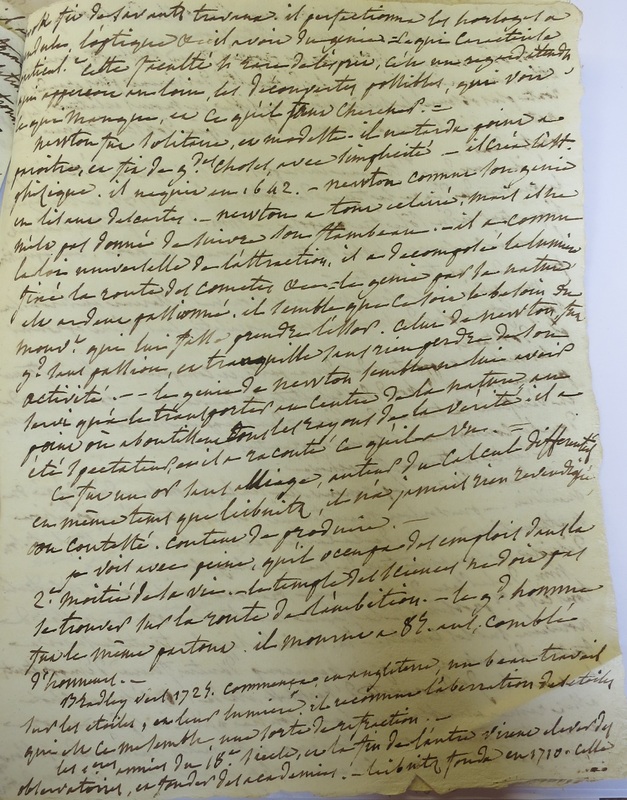 fit de savants travaux. il perfectionna les horloges a
pendules, l'optique &c il avoit du génie = ce qui caractérise
cette faculté si rare de l'esprit, c'est un regard étendu
qui apperçoit au loin, les découvertes possibles, qui voit
ce qui manque, et ce qu'il faut chercher. =
newton fut solitaire, et modeste - il ne tarda point a
paroitre, et fit de g.des choses, avec simplicité - il créa l'opt
phisique. il naquit en 1642. - newton connut son génie
en lisant descartes. - newton a tout éclairé; mais il ne
m'est pas donné de suivre son flambeau. - il a connu
la loi universelle de l'attraction, il a decomposé la lumière
fixé la route des cometes &c = le génie par sa nature
est ardent passionné. il semble que ce soit le besoin du
mouv.t qui lui fasse prendre l'essor. celui de newton fut
g.d sans passion, et tranquille sans rien perdre de son
activité. - - le génie de newton semble ne lui avoir
servi qu'a le transporter au centre de la nature, au
point ou aboutissent tous les rayons de la vérité. il a
été spectateur et il a raconté ce qu'il a vu. =
Ce fut un or sans alliage, auteur du calcul différentiel
en même tems que leibnitz, il n'a jamais rien revendiqué
ou contesté. content de produire. -
je vois avec peine, qu'il occupa des emplois dans la
2.e moitié de sa vie. - le temple des sciences ne doit pas
se trouver sur la route de l'ambition. - le g.d homme
fut le même partout. il mourut a 85. ans, comblé
d'honneurs. -
Bradley vers 1725. commença, en angleterre, un beau travail
sur les etoiles, et leur lumière, il reconnut l'aberration des etoiles
que est ce me semble une sorte de refraction. -
les 1.eres années du 18.e siècle, et la fin de l'autre virent elever des
observatoires, et fonder des academies. - leibnitz fonda en 1710. celle